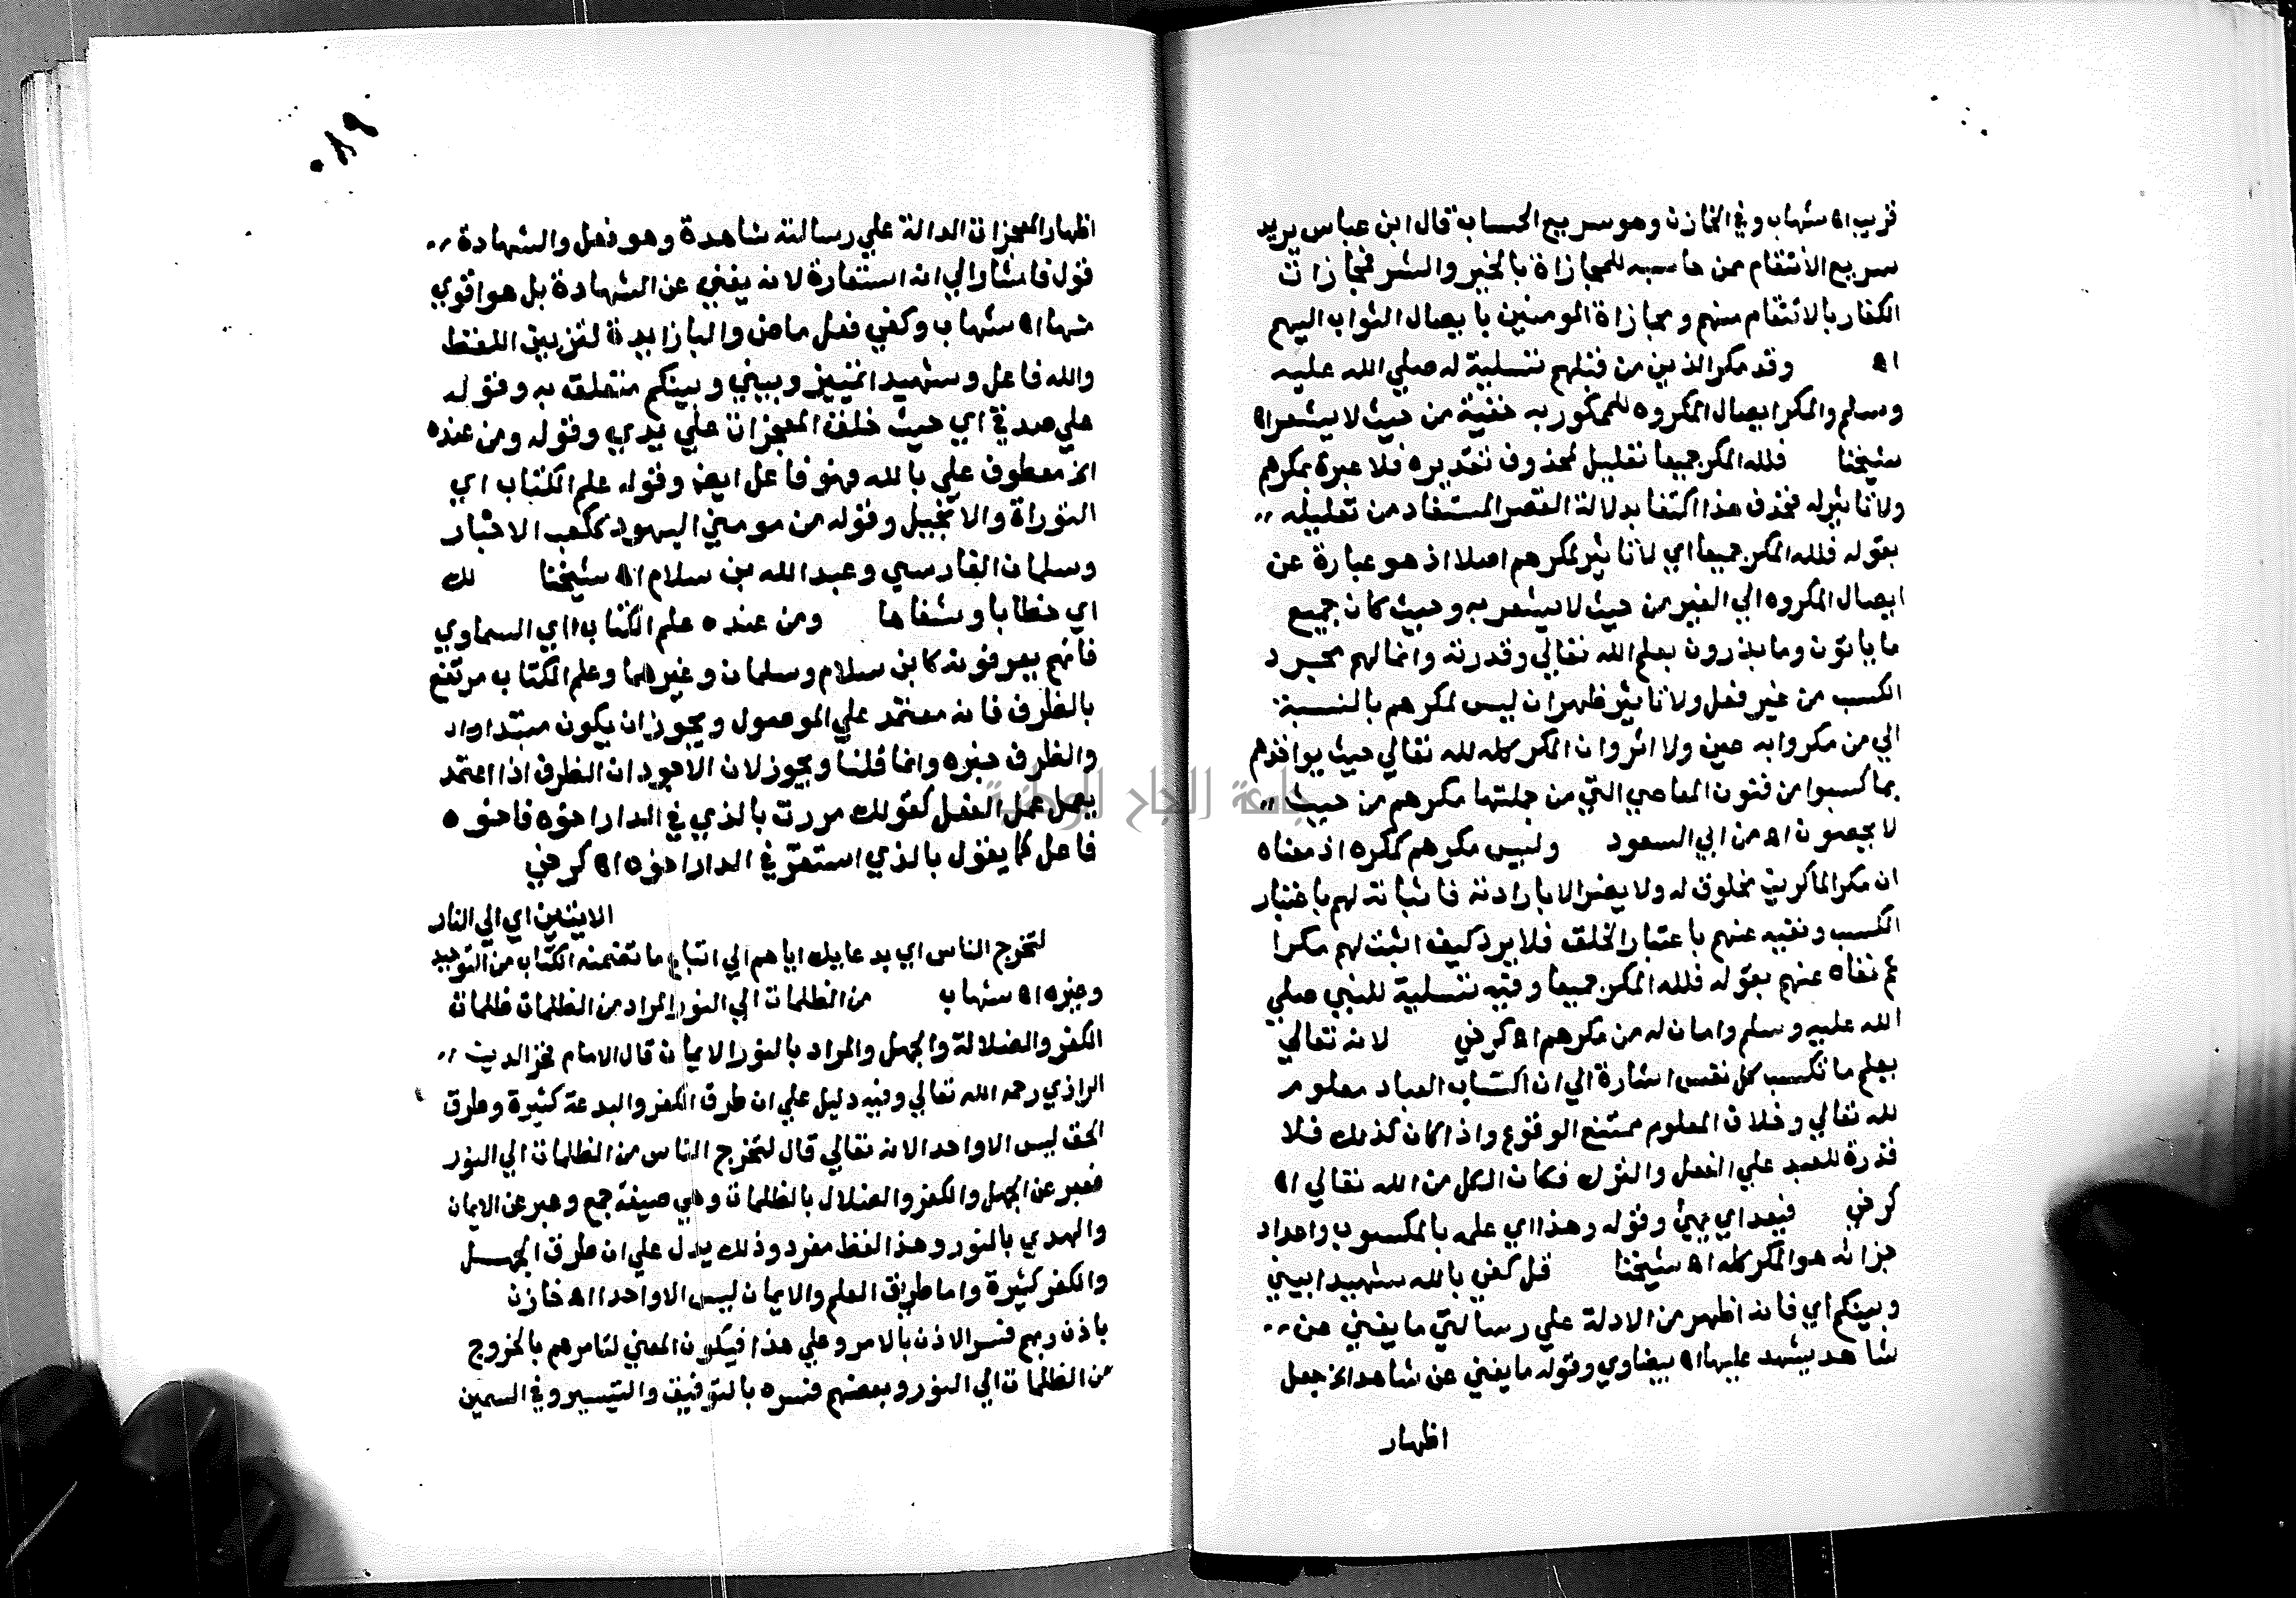 قريب اه شهاب وفي الخازن وهو سريع الحساب قال ابن عباس يريد
سريع الانتقام ممن حاسبه للمجازاة بالخير والشر فمجازات
الكفار بالانتقام منهم ومجازاة المومنين بايصال الثواب اليهم
اه وقد مكر الذين من قبلهم تسلية له صلي الله عليه
وسلم والمكر ايصال المكروه للممكور به خفية من حيث لا يشعر اه
شيخنا فلله المكر جميعا تعليل لمحذوف تقديره فلا عبرة بمكرهم
ولا تاثير له فحذف هذا اكتفا بدلالة القصر المستفاد من تعليله
بقوله فلله المكر جميعا اي لا تاثير لمكرهم اصلا اذ هو عبارة عن
ايصال المكروه الي الغير من حيث لا يشعر به وحيث كان جميع
ما ياتون وما يذرون بعلم الله تعالي وقدرته وانما لهم مجرد
الكسب من غير فعل ولا تاثير ظهر ان ليس لمكرهم بالنسبة
الي من مكروا به عين ولا اثر وان المكر كله لله تعالي حيث يواخذهم
بما كسبوا من فنون المعاصي التي من جملتها مكرهم من حيث
لا يحصون اه من ابي السعود وليس مكرهم كمكره اذ معناه
ان مكر الماكرين مخلوق له ولا يضر الا بارادته فاثباته لهم باعتبار
الكسب ونفيه عنهم باعتبار الخلق فلا يرد كيف اثبت لهم مكرا
ثم نفاه عنهم بقوله فلله المكر جميعا وفيه تسلية للنبي صلي
الله عليه وسلم وامان له من مكرهم اه كرخي لانه تعالي
يعلم ما تكسب كل نفس اشارة الي ان اكتساب العباد معلوم
لله تعالي وخلاف المعلوم ممتنع الوقوع واذا كان كذلك فلا
قدرة للعبد علي الفعل والترك فكان الكل من الله تعالي اه
كرخي فيعد اي يهيئ وقوله وهذا اي علمه بالمكسوب واعداد
جزائه هو المكر كله اه شيخنا قل كفي بالله شهيدا بيني
وبينكم اي فانه اظهر من الادلة علي رسالتي ما يغني عن
شاهد يشهد عليها اه بيضاوي وقوله ما يغني عن شاهد الخ جعل
اظهار
٠٨٩
اظهار المعجزات الدالة علي رسالته شاهدة وهو فعل والشهادة
قول فاشار الي انه استعارة لانه يغني عن الشهادة بل هو اقوي
منها اه شهاب وكفي فعل ماض والبا زايدة لتزيين اللفظ
والله فاعل وشهيدا تمييز وبيني وبينكم متعلقة به وقوله
علي صدقي اي حيث خلق المعجزات علي يدي وقوله ومن عنده
الخ معطوف علي بالله فهو فاعل ايضا وقوله علم الكتاب اي
التوراة والانجيل وقوله من مومني اليهود ككعب الاحبار
وسلمان الفارسي وعبد الله بن سلام اه شيخنا لك
اي خطابا وشفاها ومن عنده علم الكتاب اي السماوي
فانهم يعرفونه كابن سلام وسلمان وغيرهما وعلم الكتاب مرتفع
بالظرف فانه معتمد علي الموصول ويجوز ان يكون مبتدا
والظرف خبره وانما قلنا ويجوز لان الاجود ان الظرف اذا اعتمد
يعمل عمل الفعل كقولك مررت بالذي في الدار اخوه فاخوه
فاعل كما يقول بالذي استقر في الدار اخوه اه كرخي
الايتين اي الي النار
لتخرج الناس اي بدعايك اياهم الي اتباع ما تضمنه الكتاب من التوحيد
وغيره اه شهاب من الظلمات الي النور المراد من الظلمات ظلمات
الكفر والضلالة والجهل والمراد بالنور الايمان قال الامام فخر الدين
الرازي رحمه الله تعالي وفيه دليل علي ان طرق الكفر والبدعة كثيرة وطرق
الحق ليس الا واحد الانه تعالي قال لتخرج الناس من الظلمات الي النور
فعبر عن الجهل والكفر والضلال بالظلمات وهي صيغة جمع وعبر عن الايمان
والهدي بالنور وهذا لفظ مفرد وذلك يدل علي ان طرق الجهل
والكفر كثيرة واما طريق العلم والايمان ليس الا واحدا اه خازن
باذن ربهم فسر الاذن بالامر وعلي هذا فيكون المعني لتامرهم بالخروج
من الظلمات الي النور وبعضهم فسره بالتوفيق والتيسير وفي السمين
جامعة النجاح الوطنية